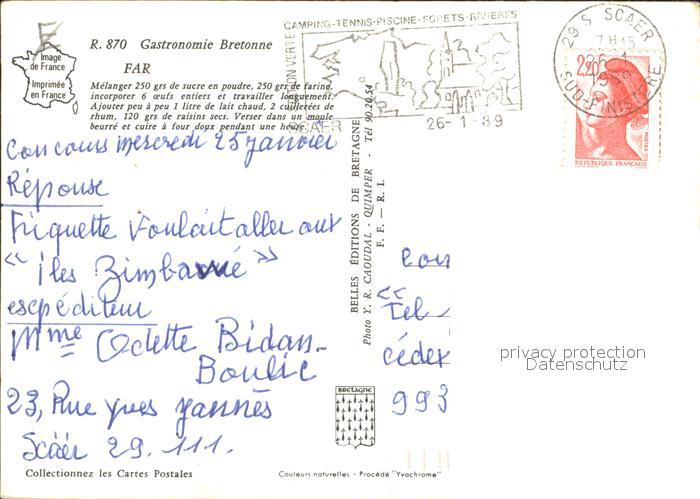 CAMPING-TENNIS-PISCINE-FORETS-RIVIERES
R. 870 Gastronomie Bretonne
FAR
Image
de France
Imprimée
en France
Mélanger 250 grs de sucre en poudre, 250 grs de farine,
incorporer 6 œufs entiers et travailler longuement.
Ajouter peu à peu 1 litre de lait chaud, 2 cuillerées de
rhum, 120 grs de raisins secs. Verser dans un moule
beurré et cuire à four doux pendant une heure.
STATION VERTE
SCAER
26-1-89
29 S SCAER
7H15
26-1
1989
SUD-FINISTERE
2,20
POSTES
REPUBLIQUE FRANÇAISE
Concours mercredi 25 janvier
Réponse
Friquette voulait aller aux
"iles Zimbawué"
escpéditeur
Mme Odette Bidan-
Boulic
23, Rue yves yannès
Scäér 29.111.
BELLES ÉDITIONS DE BRETAGNE
Photo Y. R. CAOUDAL - QUIMPER - Tél 90.20.54
F. F. — R. I.
"Tel
cédex
993
privacy protection
Datenschutz
BRETAGNE
Collectionnez les Cartes Postales
Couleurs naturelles - Procédé "Yvachrome"